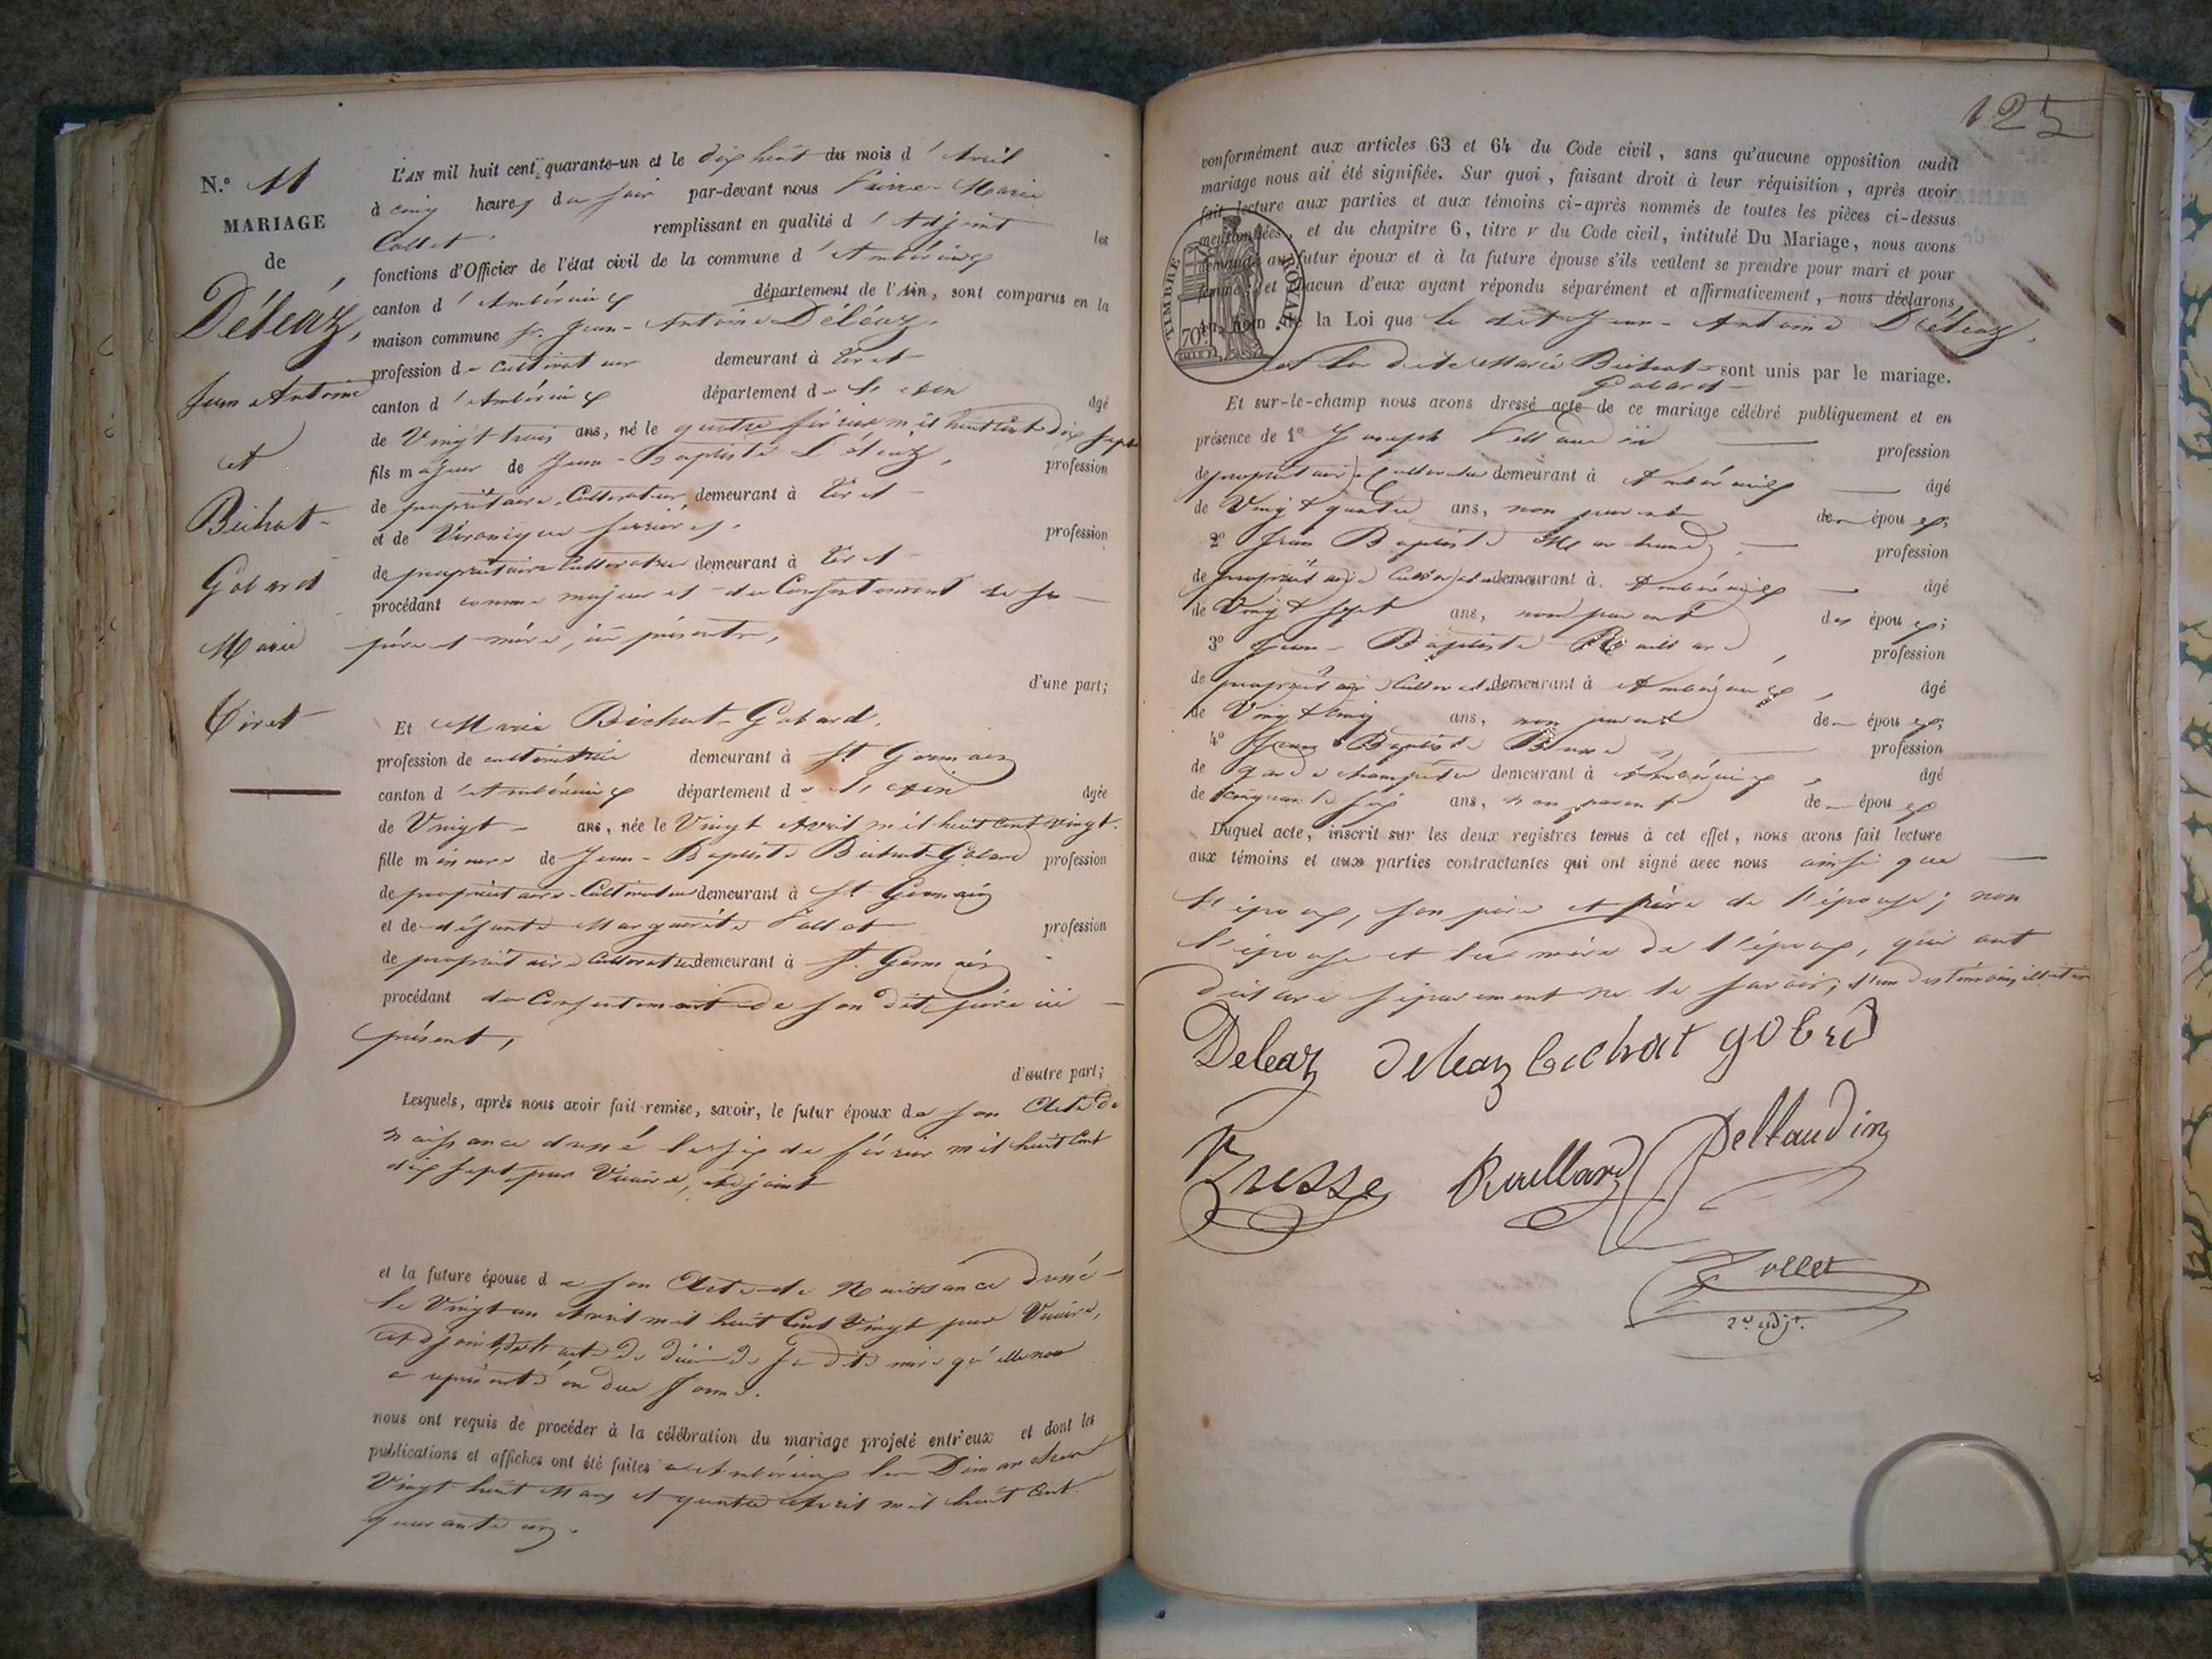 N.o 11
MARIAGE
de
Déléaz,
Jean Antoine
et
Bichat-
Gobard
Marie
Tiret
L'AN mil huit cent quarante-un et le dix huit du mois d'Avril
à cinq heures du soir par-devant nous Pierre-Marie
Collet remplissant en qualité d'Adjoint les
fonctions d'Officier de l'état civil de la commune d'Ambérieux
canton d'Ambérieux département de l'Ain, sont comparus en la
maison commune sr. Jean-Antoine Déléaz,
profession de cultivateur demeurant à Tiret
canton d'Ambérieux département de l'Ain âgé
de Vingt-trois ans, né le quatre février mil huit cent dix sept
fils majeur de Jean-Baptiste Déléaz, profession
de propriétaire-Cultivateur demeurant à Tiret
et de Véronique profession
de propriétaire Cultivatrice demeurant à Tiret
procédant comme majeur et du Consentement de ses
père et mère, ici présents,
d'une part;
Et Marie Bichat-Gobard,
profession de cultivatrice demeurant à St Germain
canton d'Ambérieux département de l'Ain âgée
de Vingt ans, née le Vingt Avril mil huit cent vingt.
fille mineure de Jean-Baptiste Bichat-Gobard profession
de propriétaire-Cultivateur demeurant à St Germain
et de défunte Marguerite Collet profession
de propriétaire Cultivatrice demeurant à St. Germain
procédant du Consentement de son dit père ici
présent,
d'autre part;
Lesquels, après nous avoir fait remise, savoir, le futur époux de son Acte de
naissance dressé le six de février mil huit Cent
dix sept, par Vicaire, adjoint
et la future épouse de son Acte de Naissance dressé
le Vingt un Avril mil huit Cent Vingt par Vicaire,
adjoint, et de l'acte de décès de sa dite mère qu'elle nous
a représenté en due forme.
nous ont requis de procéder à la célébration du mariage projeté entr'eux et dont les
publications et affiches ont été faites à Ambérieux les Dimanches
Vingt huit Mars et quatre Avril mil huit Cent
quarante un.
125
conformément aux articles 63 et 64 du Code civil, sans qu'aucune opposition audit
mariage nous ait été signifiée. Sur quoi, faisant droit à leur réquisition, après avoir
fait lecture aux parties et aux témoins ci-après nommés de toutes les pièces ci-dessus
mentionnées, et du chapitre 6, titre v du Code civil, intitulé Du Mariage, nous avons
demandé au futur époux et à la future épouse s'ils veulent se prendre pour mari et pour
femme; et chacun d'eux ayant répondu séparément et affirmativement, nous déclarons,
au nom de la Loi que le dit Jean-Antoine Déléaz,
et la dite Marie Bichat- sont unis par le mariage.
Gobard
TIMBRE ROYAL
70c
Et sur-le-champ nous avons dressé acte de ce mariage célébré publiquement et en
présence de 1o Joseph Pellaudin profession
de propriétaire Cultivateur demeurant à Ambérieux âgé
de Vingt quatre ans, non parent des époux;
2o Jean Baptiste Marchand, profession
de propriétaire Cultivateur demeurant à Ambérieux âgé
de Vingt sept ans, non parent des époux;
3o Jean-Baptiste Ruillard, profession
de propriétaire Cultivateur demeurant à Ambérieux, âgé
de Vingt cinq ans, non parent des époux;
4o Jean Baptiste Bresse, profession
de garde champêtre demeurant à Ambérieux, âgé
de cinquante six ans, non parent des époux
Duquel acte, inscrit sur les deux registres tenus à cet effet, nous avons fait lecture
aux témoins et aux parties contractantes qui ont signé avec nous ainsi que
l'époux, son père et père de l'épouse; non
l'épouse et la mère de l'époux, qui ont
déclaré séparément ne le savoir; l'un des témoins illétéré
Deleaz deleaz bichat gobrd
Bresse Ruillard Pellaudin
Collet
2e adjt.